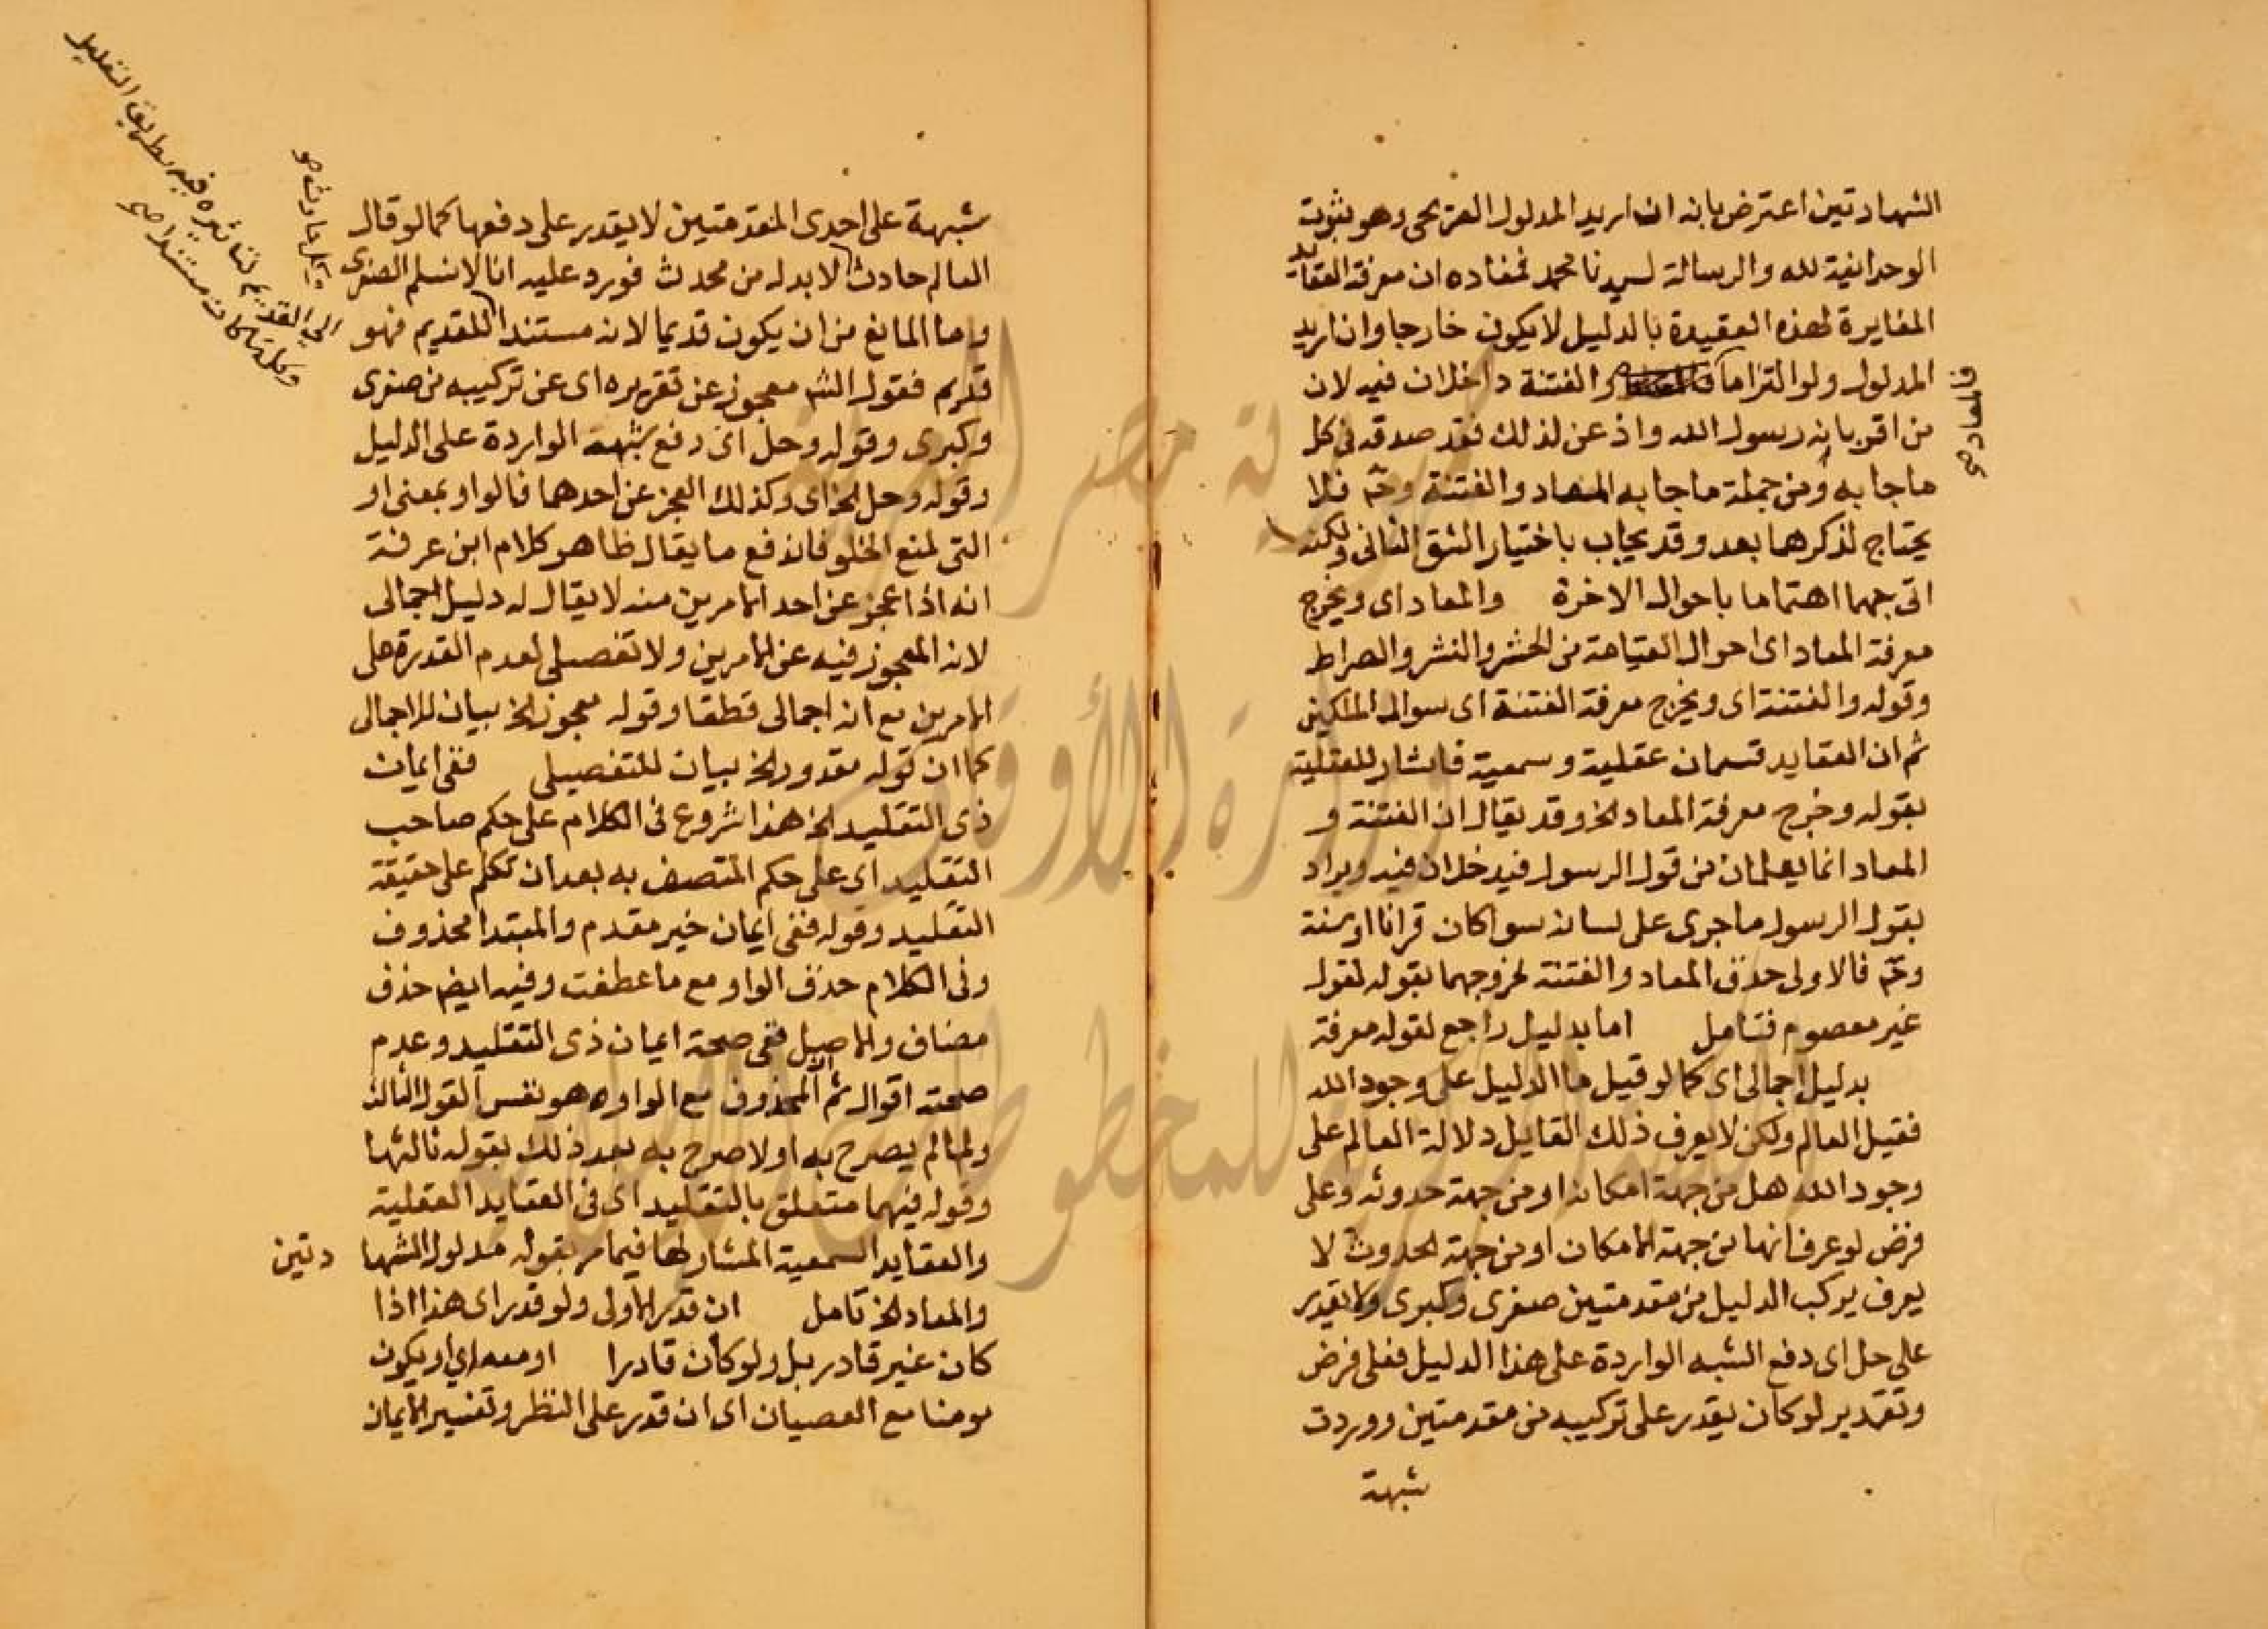 الشهادتين اعترض بانه ان اريد المدلول الصريحى وهو بثبوت
الوحدانية لله والرسالة لسيدنا محمد فمفاده ان معرفة العقايد
المغايرة لهذه العقيدة بالدليل لا يكون خارجا وان اريد
المدلول ولو التزاما والفتنة داخلان فيه لان
فالمعاد صح
من اقر بانه رسول الله واذعن لذلك فقد صدقه فى كل
ماجا به ومن جملة ماجا به المعاد والفتنة وحٓ فلا
يحتاج لذكرها بعد وقد يجاب باختيار الشق الثانى ولكنه
اتى بهما اهتماما باحوال الاخرة والمعاد اى ويخرج
معرفة المعاد اى احوال القيامة من الحشر والنشر والصراط
وقوله والفتنة اى ويخرج معرفة الفتنة اى سوال الملكين
ثم ان العقايد قسمان عقلية وسمعية فاشار للعقلية
بقوله وخرج معرفة المعاد الخ وقد يقال ان الفتنة و
المعاد انما يعلمان من قول الرسول فيدخلان فيه ويراد
بقول الرسول ماجرى على لسانه سوا كان قرانا او سنة
وحٓ فالاولى حذف المعاد والفتنة لخروجهما بقوله لقول
غير معصوم فتامل اما بدليل راجع لقوله معرفة
بدليل اجمالى اى كما لو قيل ما الدليل على وجود الله
فقيل العالم ولكن لا يعرف ذلك القايل دلالة العالم على
وجود الله هل من جهة امكانه او من جهة حدوثه وعلى
فرض لو عرف انها من جهة الامكان او من جهة الحدوث لا
يعرف يركب الدليل من مقدمتين صغرى وكبرى ولا يقدر
على حل اى دفع الشبه الواردة على هذا الدليل فعلى فرض
وتقدير لو كان يقدر على تركيبه من مقدمتين ووردت
شبهة
شبهة على احدى المقدمتين لا يقدر على دفعها كما لو قال
العالم حادث لابد له من محدث فورد عليه انا لا نسلم الصغرى
وكل حادث صح
وما المانع من ان يكون قديما لانه مستندا للقديم فهو
الى القديم لتاثيره فيه بطريق التعليل
وكل ما كان مستندا صح
قديم فقول الشم معجوز عن تقريره اى عن تركيبه من صغرى
وكبرى وقوله وحل اى دفع شبهه الواردة على الدليل
وقوله وحل الخ اى وكذلك العجز عن احدهما فالواو بمعنى او
التى لمنع الخلو فاندفع ما يقال ظاهر كلام ابن عرفة
انه اذا عجز عن احد الامرين منه لا يقال له دليل اجمالى
لانه المعجوز فيه عن الامرين ولا تفصيلى لعدم القدرة على
الامرين مع انه اجمالى قطعا وقوله معجوز الخ بيان للاجمالى
كما ان قوله مقدور الخ بيان للتفصيلى ففى ايمان
ذى التقليد الخ هذا شروع فى الكلام على حكم صاحب
التقليد اى على حكم المتصف به بعد ان تكلم على حقيقة
التقليد وقوله ففى ايمان خبر مقدم والمبتدا محذوف
وفى الكلام حذف الواو مع ما عطفت وفيه ايضم حذف
مضاف والاصل ففى صحة ايمان ذى التقليد وعدم
صحته اقوال ثم المحذوف مع الواو هو نفس القول الثالث
ولما لم يصرح به اولا صرح به بعد ذلك بقوله ثالثها
وقوله فيهما متعلق بالتقليد اى فى العقايد العقلية
والعقايد السمعية المشار لها فيما مر بقوله مدلول الشها دتين
والمعاد الخ تامل ان قدر الاولى ولو قدر اى هذا اذا
كان غير قادر بل ولو كان قادرا او معه اى او يكون
مومنا مع العصيان اى ان قدر على النظر وتفسير الايمان